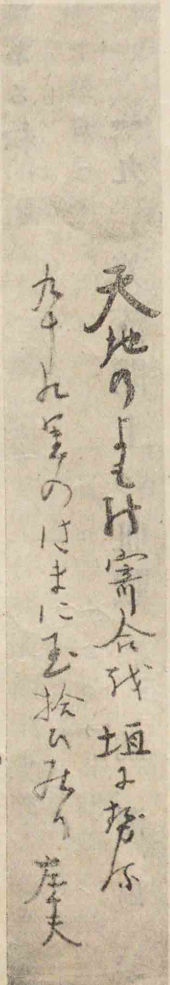 天地のよもの寄合を垣にせる
九十九里のはまに玉拾ひ居り 左千夫